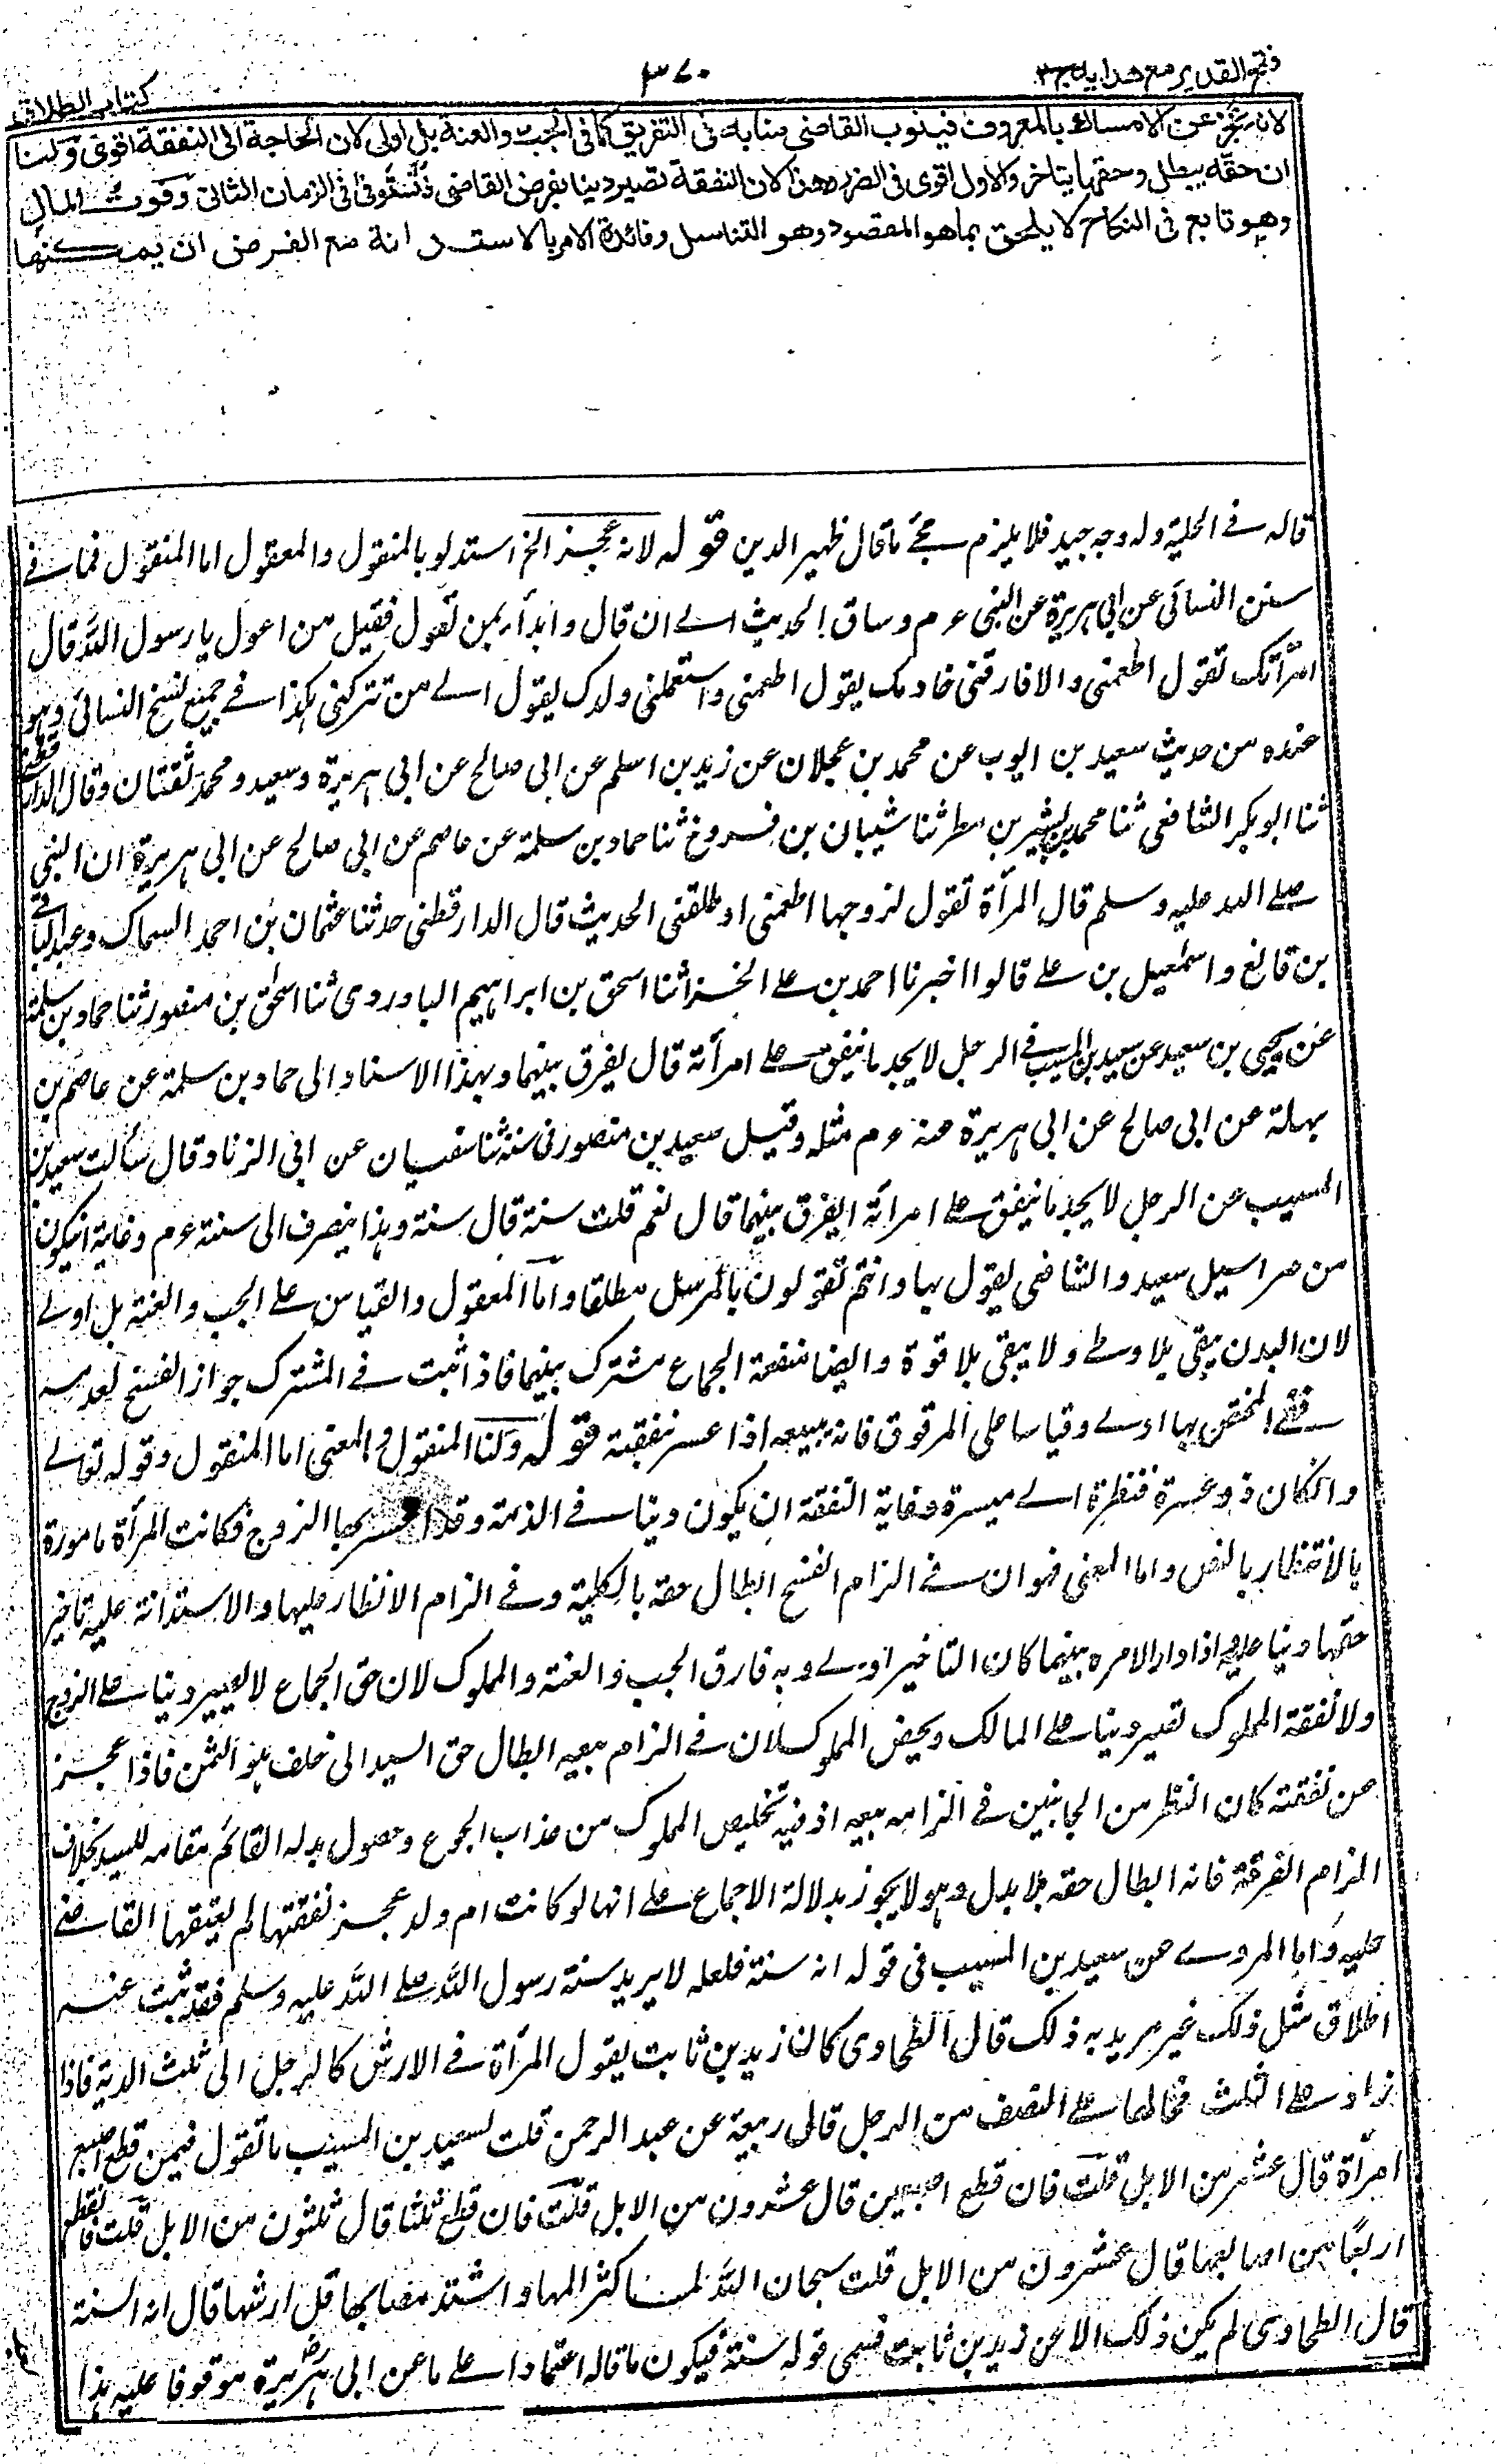 فتح القدير مع هدايه ج ٣
٣٧٠
كتاب الطلاق
لانه عجز عن الامساك بالمعروف فينوب القاضى منابه فى التفريق كما فى الجب والعنة بل اولى لان الحاجة الى النفقة اقوى ولنا
ان حقه يبطل وحقها يتاخر والاول اقوى فى الضرر وهذا لان النفقة تصير دينا بفرض القاضى فتستوفى فى الزمان الثانى وفوت المال
وهو تابع فى النكاح لا يلحق بما هو المقصود وهو التناسل وفائدة الامر بالاستدانة مع الفرض ان يمكنها
قاله فے الحلية وله وجه جيد فلا يلزم مجئ ما قال ظهير الدين قوله لانه عجز الخ استدلو بالمنقول والمعقول اما المنقول فما فے
سنن النسائى عن ابى هريرة عن النبى عرم وساق الحديث الے ان قال وابدأ بمن تعول فقيل من اعول يا رسول الله قال
امرأتك تقول اطعمنى والا فارقنى خادمك يقول اطعمنى واستعملنى ولدك يقول الے من تتركنى هكذا فے جميع نسخ النسائى وهو
عنده من حديث سعيد بن ايوب عن محمد بن عجلان عن زيد بن اسلم عن ابى صالح عن ابى هريرة وسعيد ومحمد ثقتان وقال الدارقطنى
ثنا ابو بكر الشافعى ثنا محمد بن بشير بن مطر ثنا شيبان بن فروخ ثنا حماد بن سلمة عن عاصم عن ابى صالح عن ابى هريرة ان النبى
صلے الله عليه وسلم قال المرأة تقول لزوجها اطعمنى او طلقنى الحديث قال الدارقطنى حدثنا عثمان بن احمد السماك وعبد الباقے
بن قانع واسمٰعيل بن علے قالوا اخبرنا احمد بن علے الخزاز ثنا اسحق بن ابراهيم الباوردى ثنا اسحٰق بن منصور ثنا حماد بن سلمة
عن يحيى بن سعيد عن سعيد بن المسيب فے الرجل لا يجد ما ينفق علے امرأته قال يفرق بينهما وبهذا الاسناد الى حماد بن سلمة عن عاصم بن
بهدلة عن ابى صالح عن ابى هريرة عنه عرم مثله وقيل سعيد بن منصور فى سننه ثنا سفيان عن ابى الزناد قال سألت سعيد بن
المسيب عن الرجل لا يجد ما ينفق علے امرأته ايفرق بينهما قال نعم قلت سنة قال سنة وهذا ينصرف الى سنته عرم وغاية ان يكون
من مراسيل سعيد والشافعى يقول بها وانتم تقولون بالمرسل مطلقا واما المعقول والقياس علے الجب والعنة بل اولے
لان البدن يبقى بلا وطے ولا يبقى بلا قوة وايضا منفعة الجماع مشترك بينهما فاذا ثبت فے المشترك جواز الفسخ لعدمه
ففے المختص بها اولے وقياسا على المرقوق فانه يبيعه اذا عسر نفقته قوله ولنا المنقول والمعنى اما المنقول وقوله تعالے
وان كان ذو عسرة فنظرة الے ميسرة وغاية النفقة ان يكون دينا فے الذمة وقد اعسر بها الزوج فكانت المرأة مامورة
بالانتظار بالنص واما المعنى فهو ان فے الزام الفسخ ابطال حقه بالكلية وفے الزام الانظار عليها والاستدانة عليه تاخير
حقها دينا عليه اذا دار الامر بينهما كان التاخير اولے وبه فارق الجب والعنة والمملوك لان حق الجماع لا يصير دينا علے الزوج
ولا نفقة المملوك تصير دينا علے المالك ويخص المملوك لان فے الزام بيعه ابطال حق السيد الى خلف هو الثمن فاذا عجز
عن نفقته كان النظر من الجانبين فے الزامه ببيعه اذ فيه تخليص المملوك من عذاب الجوع وحصول بدله القائم مقامه للسيد بخلاف
الزام الفرقة فانه ابطال حقه بلا بدل وهو لا يجوز بدلالة الاجماع علے انها لو كانت ام ولد عجز نفقتها لم يعتقها القاضے
عليه واما المروے عن سعيد بن المسيب فى قوله انه سنة فلعله لا يريد سنة رسول الله صلے الله عليه وسلم فقد ثبت عنه
اطلاق مثل ذلك غير مريد به ذلك قال الطحاوى كان زيد بن ثابت يقول المرأة فے الارش كالرجل الى ثلث الدية فاذا
زاد علے الثلث فحالها علے النصف من الرجل قال ربيعة عن عبد الرحمن قلت لسعيد بن المسيب ما تقول فيمن قطع اصبع
امرأة قال عشر من الابل قلت فان قطع اصبعين قال عشرون من الابل قلت فان قطع ثلثا قال ثلثون من الابل قلت فان قطع
اربعا من اصابعها قال عشرون من الابل قلت سبحان الله لما كثر المها واشتد مصابها قل ارشها قال انه السنة
قال الطحاوى لم يكن ذلك الا عن زيد بن ثابت فسمى قوله سنة فيكون ما قاله اعتمادا علے ما عن ابى هريرة موقوفا عليه هذا